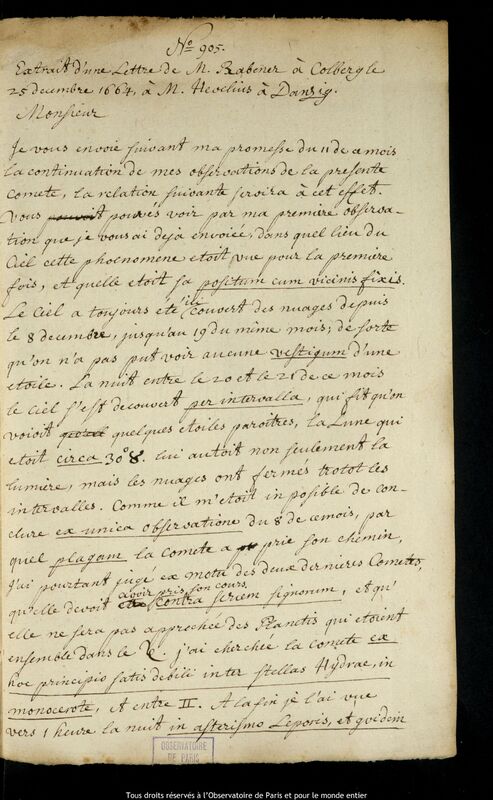 No 905.
Extrait d'une Lettre de M. Rabener à Colberg le
25 decembre 1664, à M. Hevelius à Danzig.
Monsieur
Je vous envoie suivant ma promesse du 11 de ce mois
la continuation de mes observations de la presente
comete, la relation suivante servira à cet effet.
Vous pouvoit pouves voir par ma premiere observa-
tion que je vous ai deja envoiée, dans quel lieu du
Ciel cette phoenomene etoit vue pour la premiere
fois, et quelle etoit sa positum cum vicinis fixis.
Le Ciel a toujours eté ici couvert des nuages depuis
le 8 decembre, jusqu'au 19 du même mois; de sorte
qu'on n'a pas put voir aucune vestigum d'une
etoile. La nuit entre le 20 et le 21 de ce mois
le ciel s'est decouvert per intervalla, qui fit qu'on
voioit quelques etoiles paroitres, la Lune qui
etoit circa 30° 8. lui autoit non seulement la
lumiere, mais les nuages ont fermés trotot les
intervalles. Comme il m'etoit in posible de con-
clure ex unica observatione du 8 de ce mois, par
quel plagam la comete a prie son chemin,
J'ai pourtant jugé ex motu des deux dernieres Cometes,
qu'elle devoit avoir pris son cours contra seriem signorum, et qu'
elle ne sera pas approchée des Planetis qui etoient
ensemble dans le ♑. j'ai cherchee la comete ex
hoc principio satis debili inter stellas Hydrae, in
monocerote, et entre II. A la fin je l'ai vue
vers 1 heure la nuit in asterismo Leporis, et quidem
OBSERVATOIRE
DE PARIS
Tous droits réservés à l'Observatoire de Paris et pour le monde entier